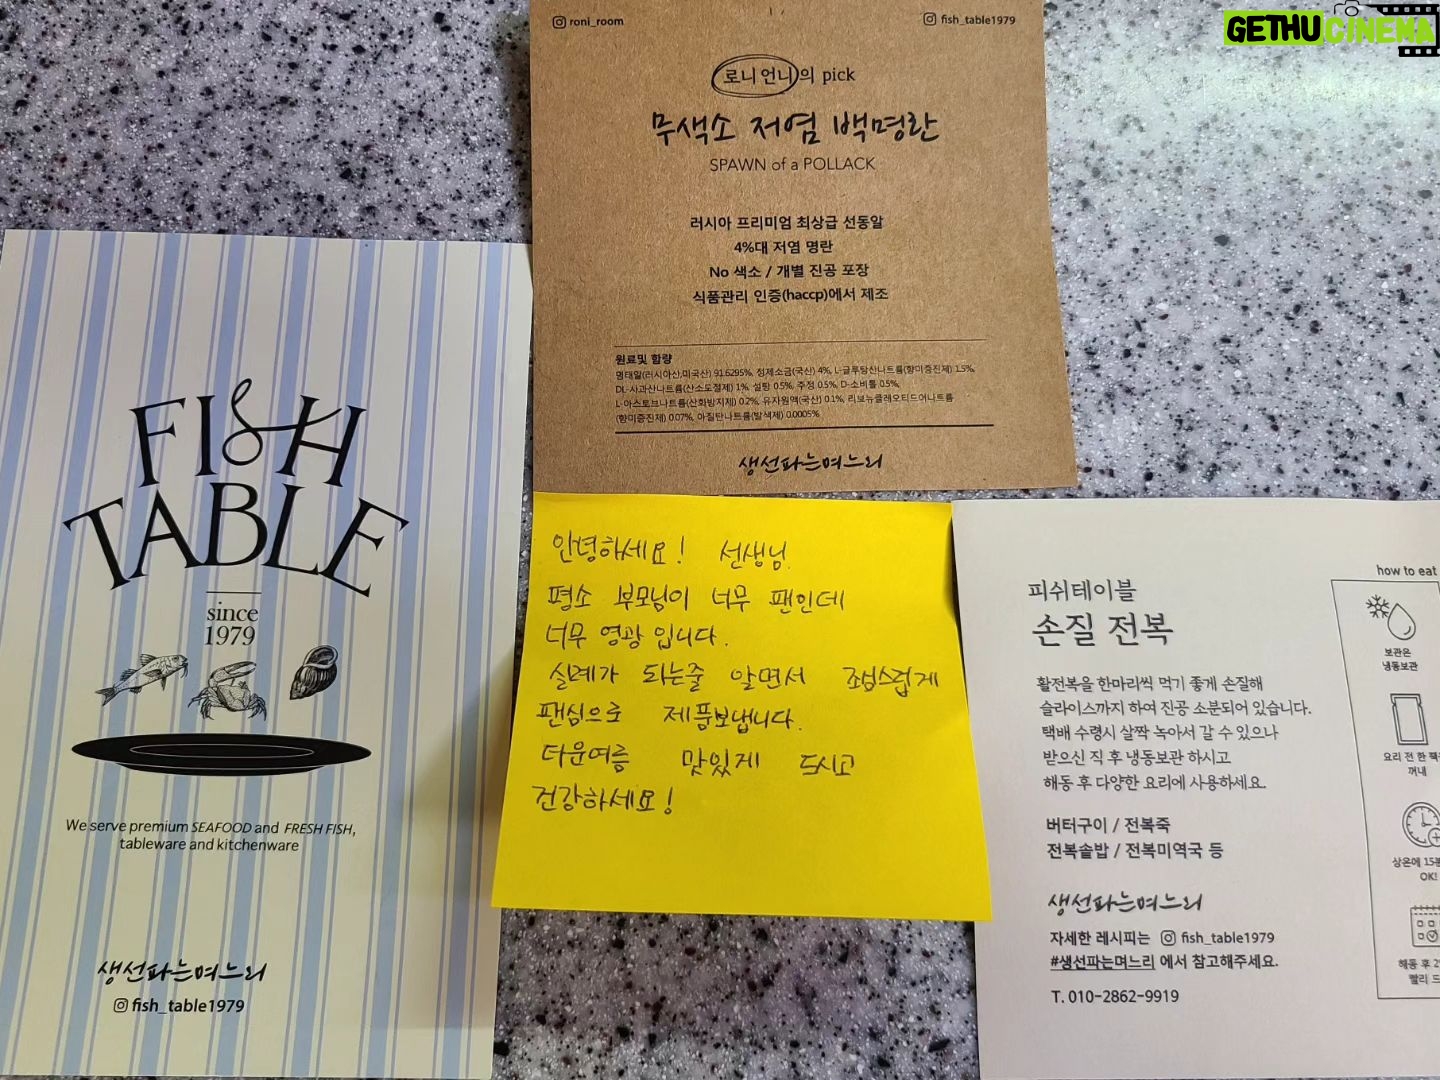 GETHUCINEMA
roni_room
fish_table1979
로니 언니의 pick
무색소 저염 백명란
SPAWN of a POLLACK
러시아 프리미엄 최상급 선동알
4%대 저염 명란
No 색소 / 개별 진공 포장
식품관리 인증(haccp)에서 제조
원료및 함량
명태알(러시아산,미국산) 91.6295%, 정제소금(국산) 4%, L-글루탐산나트륨(향미증진제) 1.5%,
DL-사과산나트륨(산소도절제) 1%, 설탕 0.5%, 주정 0.5%, D-소비톨 0.5%,
L-아스토브나트륨(산화방지제) 0.2%, 유자원액(국산) 0.1%, 리보뉴클레오티드이나트륨
(향미증진제) 0.07%, 아질탄나트륨(발색제) 0.0005%
생선파는며느리
FISH
TABLE
since
1979
We serve premium SEAFOOD and FRESH FISH,
tableware and kitchenware
생선파는며느리
fish_table1979
안녕하세요! 선생님.
평소 부모님이 너무 팬인데
너무 영광 입니다.
실례가 되는줄 알면서 조심스럽게
팬심으로 제품보냅니다.
더운여름 맛있게 드시고
건강하세요!
피쉬테이블
손질 전복
활전복을 한마리씩 먹기 좋게 손질해
슬라이스까지 하여 진공 소분되어 있습니다.
택배 수령시 살짝 녹아서 갈 수 있으나
받으신 직 후 냉동보관 하시고
해동 후 다양한 요리에 사용하세요.
버터구이 / 전복죽
전복솥밥 / 전복미역국 등
생선파는며느리
자세한 레시피는 fish_table1979
#생선파는며느리 에서 참고해주세요.
T. 010-2862-9919
how to eat
보관은
냉동보관
요리 전 한 팩
꺼내
상온에 15분
OK!
해동 후 2
빨리 드